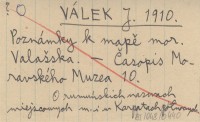 ? O
VÁLEK J. 1910.
Poznámky k mapě mor.
Valašska. – Časopis Mo-
ravského Muzea 10.
O rumuńskich nazwach
miejscowych m.i. w Karpatach